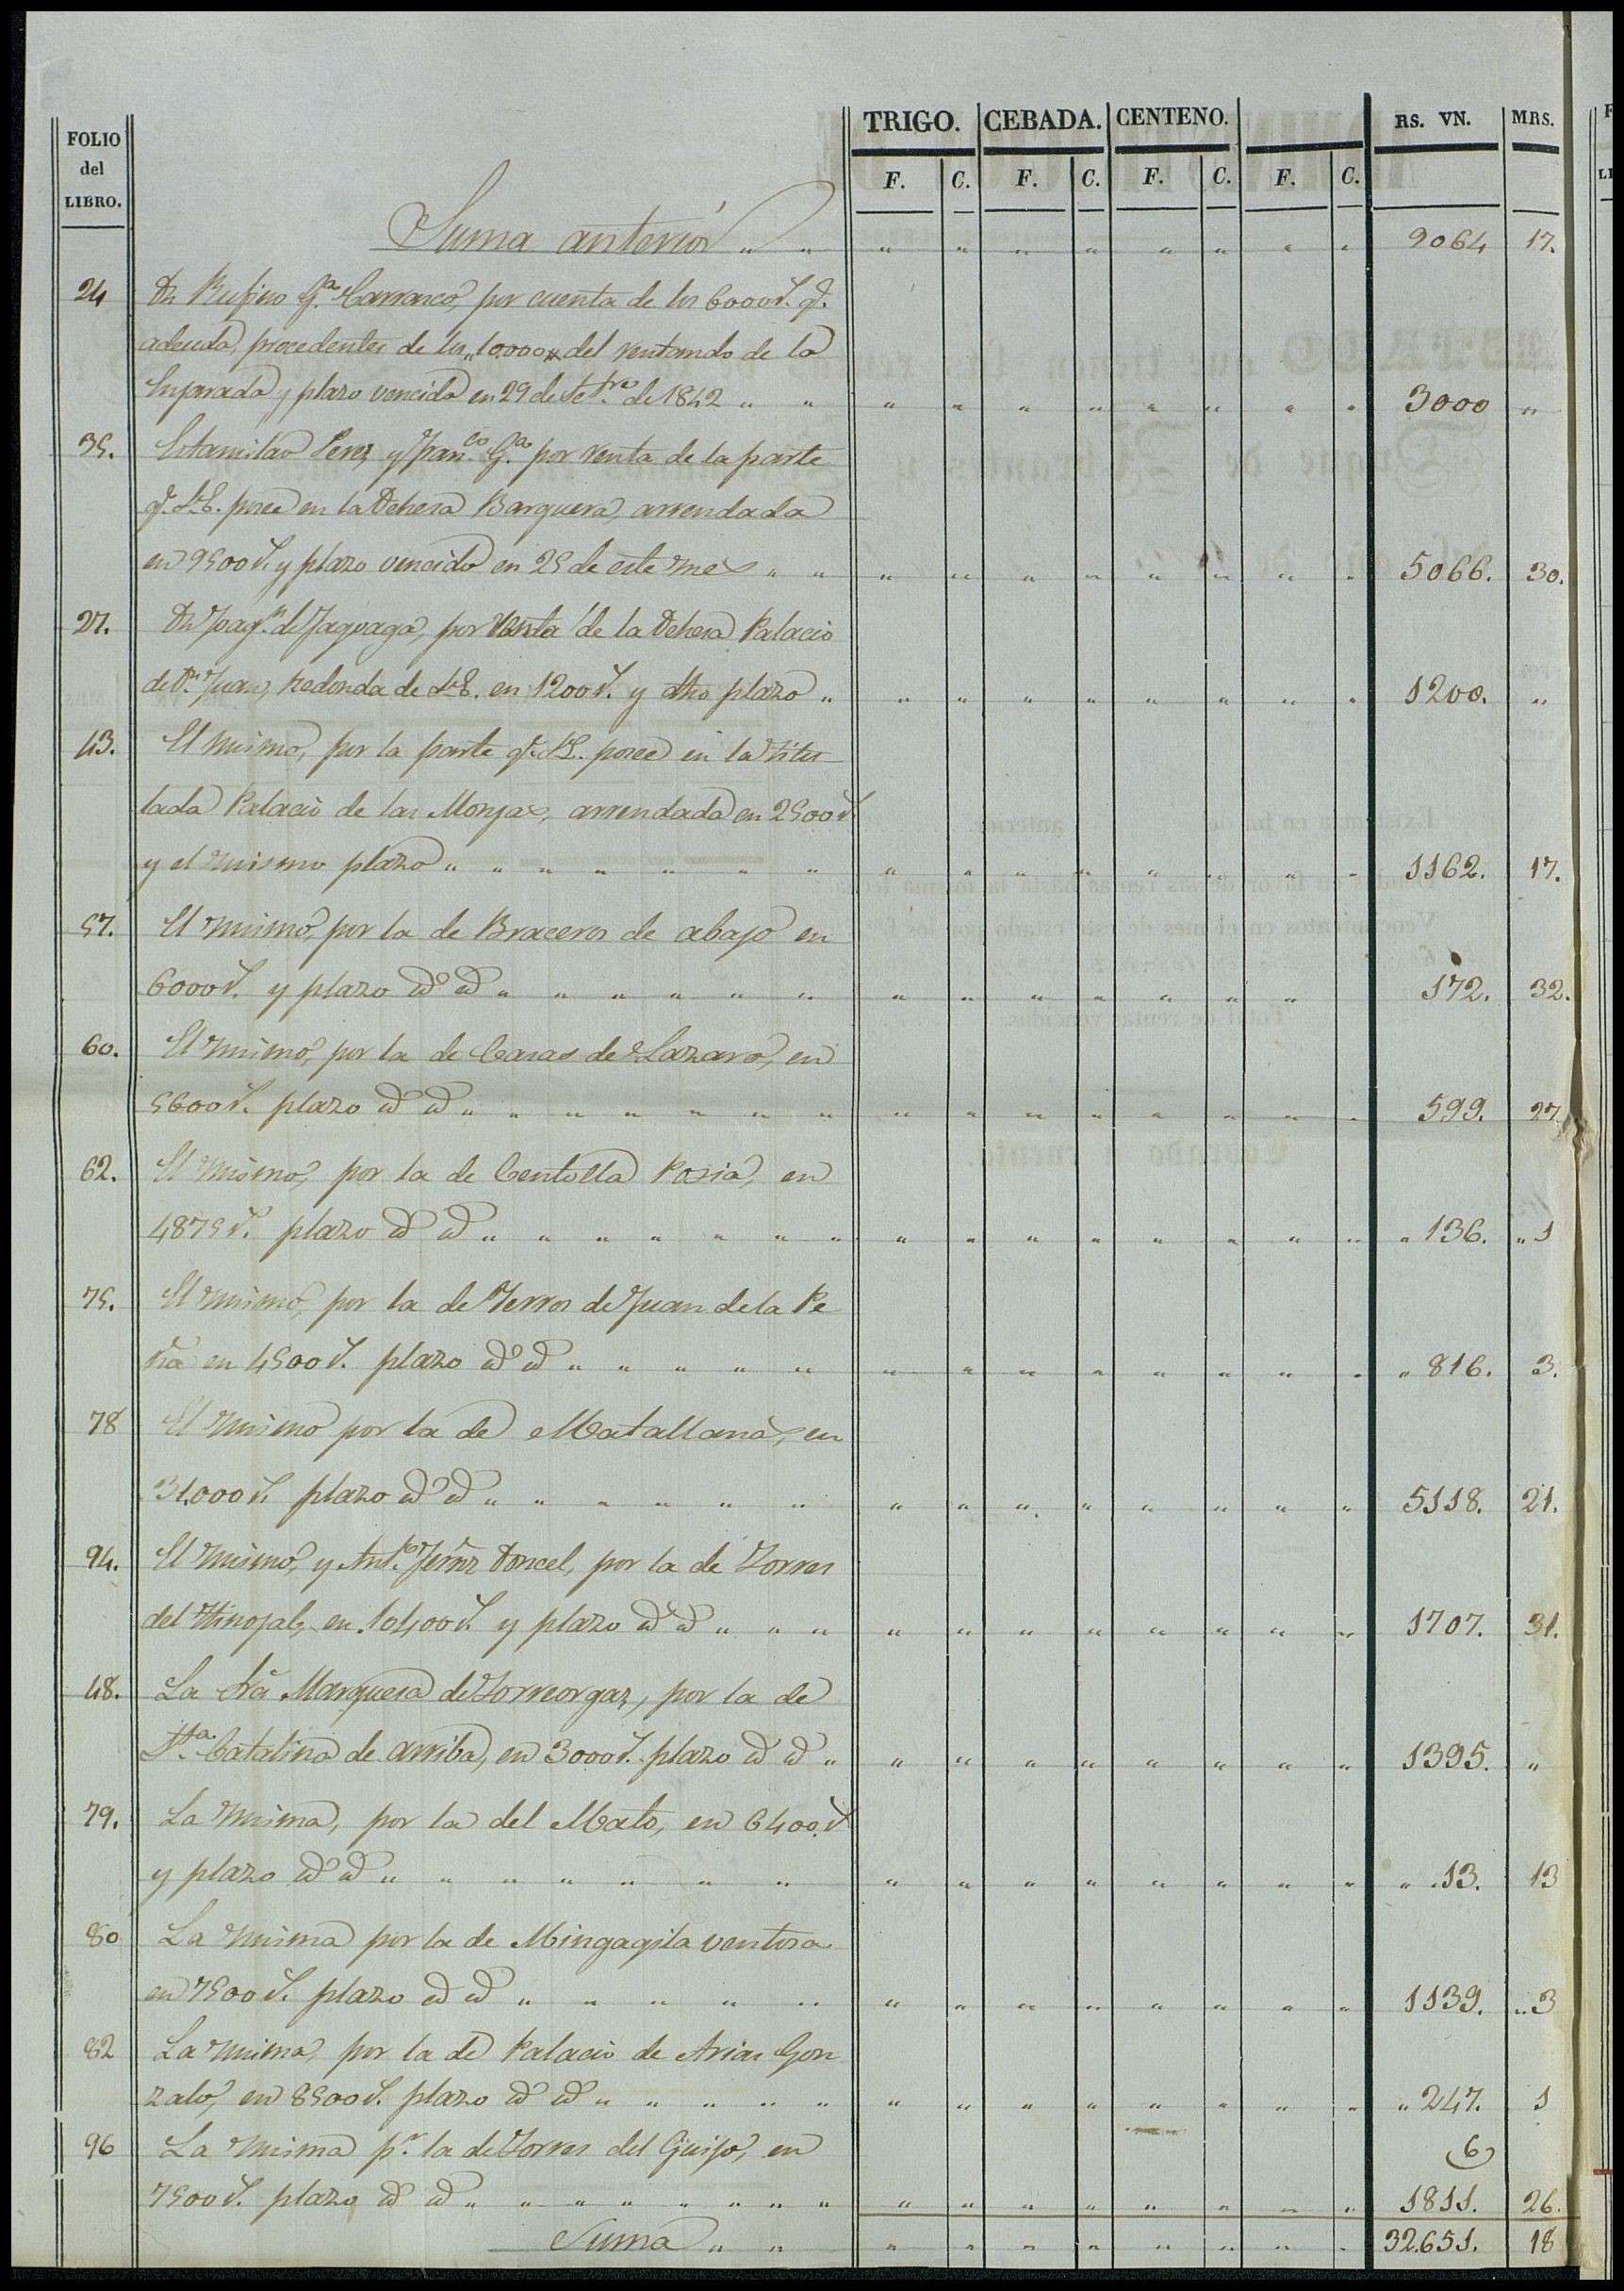 FOLIO del LIBRO. TRIGO. CEBADA. CENTENO. RS. VN. MRS.
F. C. F. C. F. C. F. C.
Suma anterior " " " " " " " " " " 9064 17.
24 Dn Rufino Ga. Carrasco, por cuenta de los 6000 r. q.
adeuda, procedentes de los 10000 " del rentando de la
y plazo vencido en 29 de Setre. de 1842 " " " " " " " " " " 3000 "
35. Estanislao Perez y Franco. Ga. por renta de la parte
q. S.E. posee en la Dehesa Barquera, arrendada
en 9500 r. y plazo vencido en 25 de este mes " " " " " " " " " " 5066. 30.
27. Dn Joaqn. de Jaguaga, por renta de la Dehesa Palacio
de Dn. Juan, redonda de S.E. en 1200 r. y dho plazo " " " " " " " " " 1200. "
43. El mismo, por la parte q. S.E. posee en la titu
lada Palacio de las Monjas, arrendada en 2500 r.
y el mismo plazo " " " " " " " " " " " " " " " 1162. 17.
57. El mismo, por la de Braceros de abajo en
6000 r. y plazo id. id. " " " " " " " " " " " " " 172. 32.
60. El mismo, por la de Casas de Lazaro, en
5600 r. plazo id. id. " " " " " " " " " " " " " " " 599. 27.
62. El mismo, por la de Centolla Posia, en
4875 r. plazo id. id. " " " " " " " " " " " " " " " " 136. " 1
75. El mismo, por la de Terros de Juan de la Pe
ña en 4500 r. plazo id. id. " " " " " " " " " " " " " " 816. 3.
78 El mismo por la de Matallana, en
31.000 r. plazo id. id. " " " " " " " " " " " " " " 5118. 21.
94. El mismo, y Anto. Doncel, por la de Torres
del Hinojal, en 10400 r. y plazo id. id. " " " " " " " " " " " 1707. 31.
48. La Sra Marquesa de Torreorgaz, por la de
Sta. Catalina de arriba, en 3000 r. plazo id. id. " " " " " " " " " 1395. "
79. La misma, por la del Mato, en 6400 r.
y plazo id. id. " " " " " " " " " " " " " " " " 13. 13
80 La misma por la de Mingagila ventosa
en 7500 r. plazo id. id. " " " " " " " " " " " " " 1139. " 3
82 La misma, por la de Palacio de Arias Gon
zalo, en 8500 r. plazo id. id. " " " " " " " " " " " " " " 247. 1
96 La misma pr. la de Torres del Guijo, en
6
7500 r. plazo id. id. " " " " " " " " " " " " " " " " 1811. 26.
Suma " " " " " " " " " " 32.651. 18